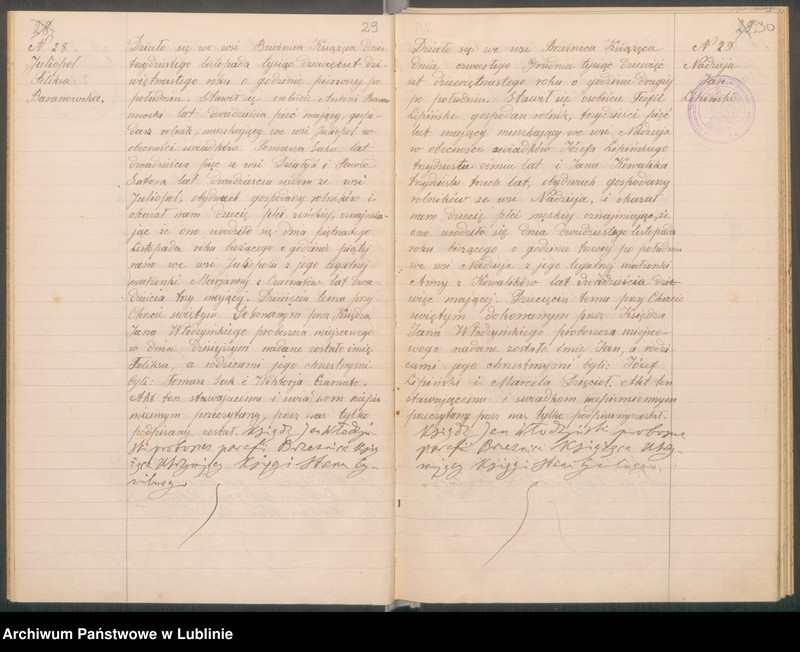 29
N 28
Juliopol
Feliksa
Baranowska.
Działo się we wsi Brzeźnica Książęca dnia
trzydziestego listopada tysiąc dziewięćset dzie
więtnastego roku o godzinie pierwszej po
południu. Stawił się osobiście Antoni Bara
nowski lat dwadzieścia pięć mający, gospo-
darz rolnik, mieszkający we wsi Juliopol w
obecności świadków Tomasza Saka lat
dwadzieścia pięć ze wsi i
lat dwadzieścia siedem ze wsi
Juliopol, obydwóch gospodarzy rolników i
okazał nam dziecię płci żeńskiej, oznajmia-
jąc że ono urodziło się dnia piętnastego
listopada roku bieżącego o godzinie piątej
rano we wsi Juliopolu z jego legalnej
małżonki Marjanny z Czarnotów lat dwa-
dzieścia trzy mającej. Dziecięciu temu przy
Chrzcie świętym dokonanym przez Księdza
Jana Włodzyńskiego proboszcza miejscowego
w dniu dzisiejszym nadane zostało imię
Feliksa, a rodzicami jego chrzestnymi
byli: Tomasz Sak i Wiktorja Czarnota.
Akt ten stawającemu i świadkom niepiś
miennym przeczytany, przez nas tylko
podpisany został. Ksiądz Jan Włodzyń
ski proboszcz parafii Brzeźnica Książ
ęca Utrzymujący Księgi Stanu Cy-
wilnego
30
N 29
Nadzieja
Jan
Lipiński
Działo się we wsi Brzeźnica Książęca
dnia czwartego Grudnia tysiąc dziewięć
set dziewiętnastego roku o godzinie drugiej
po południu. Stawił się osobiście Teofil
Lipiński gospodarz rolnik, trzydzieści pięć
lat mający mieszkający we wsi Nadzieja
w obecności świadków Józefa Lipińskiego
trzydziestu ośmiu lat i Jana Kowalika
trzydziestu trzech lat, obydwóch gospodarzy
rolników ze wsi Nadzieja, i okazał
nam dziecię płci męskiej oznajmiając, że
ono urodziło się dnia dwudziestego listopada
roku bieżącego o godzinie trzeciej po południu
we wsi Nadzieja z jego legalnej małżonki
Anny z Kowalików lat dwadzieścia dzie-
więć mającej. Dziecięciu temu przy Chrzcie
świętym dokonanym przez Księdza
Jana Włodzyńskiego proboszcza miejsco-
wego nadane zostało imię Jan, a rodzi-
cami jego chrzestnymi byli: Józef
Lipiński i Marcela Dzięcioł. Akt ten
stawającemu i świadkom niepiśmiennym
przeczytany przez nas tylko podpisany został.
Ksiądz Jan Włodzyński proboszcz
parafii Brzeźnica Książęca Utrzy-
mujący Księgi Stanu Cywilnego.
Archiwum Państwowe w Lublinie